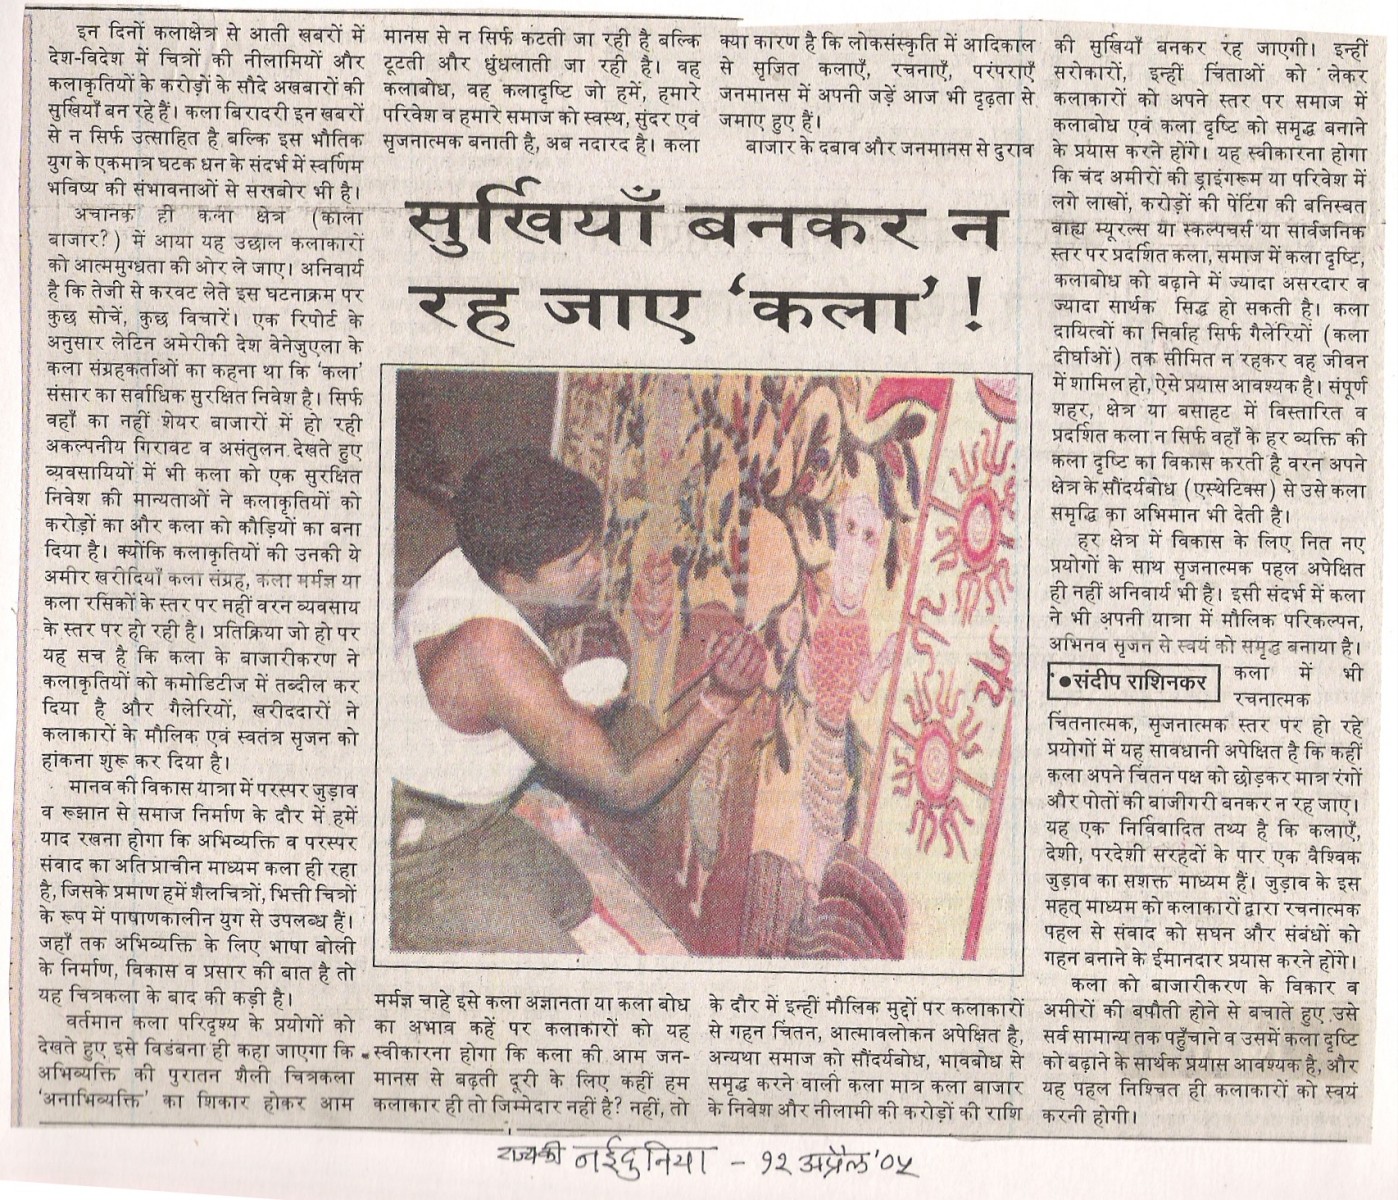 सुर्खियाँ बनकर न
रह जाए ‘कला’ !
इन दिनों कलाक्षेत्र से आती खबरों में
देश-विदेश में चित्रों की नीलामियों और
कलाकृतियों के करोड़ों के सौदे अखबारों की
सुर्खियाँ बन रहे हैं। कला बिरादरी इन खबरों
से न सिर्फ उत्साहित है बल्कि इस भौतिक
युग के एकमात्र घटक धन के संदर्भ में स्वर्णिम
भविष्य की संभावनाओं से सखबोर भी है।
अचानक ही कला क्षेत्र (काला
बाजार?) में आया यह उछाल कलाकारों
को आत्ममुग्धता की ओर ले जाए। अनिवार्य
है कि तेजी से करवट लेते इस घटनाक्रम पर
कुछ सोचें, कुछ विचारें। एक रिपोर्ट के
अनुसार लेटिन अमेरीकी देश वेनेजुएला के
कला संग्रहकर्ताओं का कहना था कि ‘कला’
संसार का सर्वाधिक सुरक्षित निवेश है। सिर्फ
वहाँ का नहीं शेयर बाजारों में हो रही
अकल्पनीय गिरावट व असंतुलन देखते हुए
व्यवसायियों में भी कला को एक सुरक्षित
निवेश की मान्यताओं ने कलाकृतियों को
करोड़ों का और कला को कौड़ियों का बना
दिया है। क्योंकि कलाकृतियों की उनकी ये
अमीर खरीदियाँ कला संग्रह, कला मर्मज्ञ या
कला रसिकों के स्तर पर नहीं वरन व्यवसाय
के स्तर पर हो रही है। प्रतिक्रिया जो हो पर
यह सच है कि कला के बाजारीकरण ने
कलाकृतियों को कमोडिटीज में तब्दील कर
दिया है और गैलेरियों, खरीददारों ने
कलाकारों के मौलिक एवं स्वतंत्र सृजन को
हांकना शुरू कर दिया है।
मानव की विकास यात्रा में परस्पर जुड़ाव
व रूझान से समाज निर्माण के दौर में हमें
याद रखना होगा कि अभिव्यक्ति व परस्पर
संवाद का अति प्राचीन माध्यम कला ही रहा
है, जिसके प्रमाण हमें शैलचित्रों, भित्ती चित्रों
के रूप में पाषाणकालीन युग से उपलब्ध हैं।
जहाँ तक अभिव्यक्ति के लिए भाषा बोली
के निर्माण, विकास व प्रसार की बात है तो
यह चित्रकला के बाद की कड़ी है।
वर्तमान कला परिदृश्य के प्रयोगों को
देखते हुए इसे विडंबना ही कहा जाएगा कि
अभिव्यक्ति की पुरातन शैली चित्रकला
‘अनाभिव्यक्ति’ का शिकार होकर आम
मानस से न सिर्फ कटती जा रही है बल्कि
टूटती और धुंधलाती जा रही है। वह
कलाबोध, वह कलादृष्टि जो हमें, हमारे
परिवेश व हमारे समाज को स्वस्थ, सुंदर एवं
सृजनात्मक बनाती है, अब नदारद है। कला
मर्मज्ञ चाहे इसे कला अज्ञानता या कला बोध
का अभाव कहें पर कलाकारों को यह
स्वीकारना होगा कि कला की आम जन-
मानस से बढ़ती दूरी के लिए कहीं हम
कलाकार ही तो जिम्मेदार नहीं है? नहीं, तो
क्या कारण है कि लोकसंस्कृति में आदिकाल
से सृजित कलाएँ, रचनाएँ, परंपराएँ
जनमानस में अपनी जड़ें आज भी दृढ़ता से
जमाए हुए हैं।
बाजार के दबाव और जनमानस से दुराव
के दौर में इन्हीं मौलिक मुद्दों पर कलाकारों
से गहन चिंतन, आत्मावलोकन अपेक्षित है,
अन्यथा समाज को सौंदर्यबोध, भावबोध से
समृद्ध करने वाली कला मात्र कला बाजार
के निवेश और नीलामी की करोड़ों की राशि
की सुर्खियाँ बनकर रह जाएगी। इन्हीं
सरोकारों, इन्हीं चिंताओं को लेकर
कलाकारों को अपने स्तर पर समाज में
कलाबोध एवं कला दृष्टि को समृद्ध बनाने
के प्रयास करने होंगे। यह स्वीकारना होगा
कि चंद अमीरों की ड्राइंगरूम या परिवेश में
लगे लाखों, करोड़ों की पेंटिंग की बनिस्बत
बाह्य म्यूरल्स या स्कल्पचर्स या सार्वजनिक
स्तर पर प्रदर्शित कला, समाज में कला दृष्टि,
कलाबोध को बढ़ाने में ज्यादा असरदार व
ज्यादा सार्थक सिद्ध हो सकती है। कला
दायित्वों का निर्वाह सिर्फ गैलेरियों (कला
दीर्घाओं) तक सीमित न रहकर वह जीवन
में शामिल हो, ऐसे प्रयास आवश्यक है। संपूर्ण
शहर, क्षेत्र या बसाहट में विस्तारित व
प्रदर्शित कला न सिर्फ वहाँ के हर व्यक्ति की
कला दृष्टि का विकास करती है वरन अपने
क्षेत्र के सौंदर्यबोध (एस्थेटिक्स) से उसे कला
समृद्धि का अभिमान भी देती है।
हर क्षेत्र में विकास के लिए नित नए
प्रयोगों के साथ सृजनात्मक पहल अपेक्षित
ही नहीं अनिवार्य भी है। इसी संदर्भ में कला
ने भी अपनी यात्रा में मौलिक परिकल्पन,
अभिनव सृजन से स्वयं को समृद्ध बनाया है।
●संदीप राशिनकर
कला में भी
रचनात्मक
चिंतनात्मक, सृजनात्मक स्तर पर हो रहे
प्रयोगों में यह सावधानी अपेक्षित है कि कहीं
कला अपने चिंतन पक्ष को छोड़कर मात्र रंगों
और पोतों की बाजीगरी बनकर न रह जाए।
यह एक निर्विवादित तथ्य है कि कलाएँ,
देशी, परदेशी सरहदों के पार एक वैश्विक
जुड़ाव का सशक्त माध्यम हैं। जुड़ाव के इस
महत् माध्यम को कलाकारों द्वारा रचनात्मक
पहल से संवाद को सघन और संबंधों को
गहन बनाने के ईमानदार प्रयास करने होंगे।
कला को बाजारीकरण के विकार व
अमीरों की बपौती होने से बचाते हुए उसे
सर्व सामान्य तक पहुँचाने व उसमें कला दृष्टि
को बढ़ाने के सार्थक प्रयास आवश्यक है, और
यह पहल निश्चित ही कलाकारों को स्वयं
करनी होगी।
राज्य की नईदुनिया - १२ अप्रैल '०५